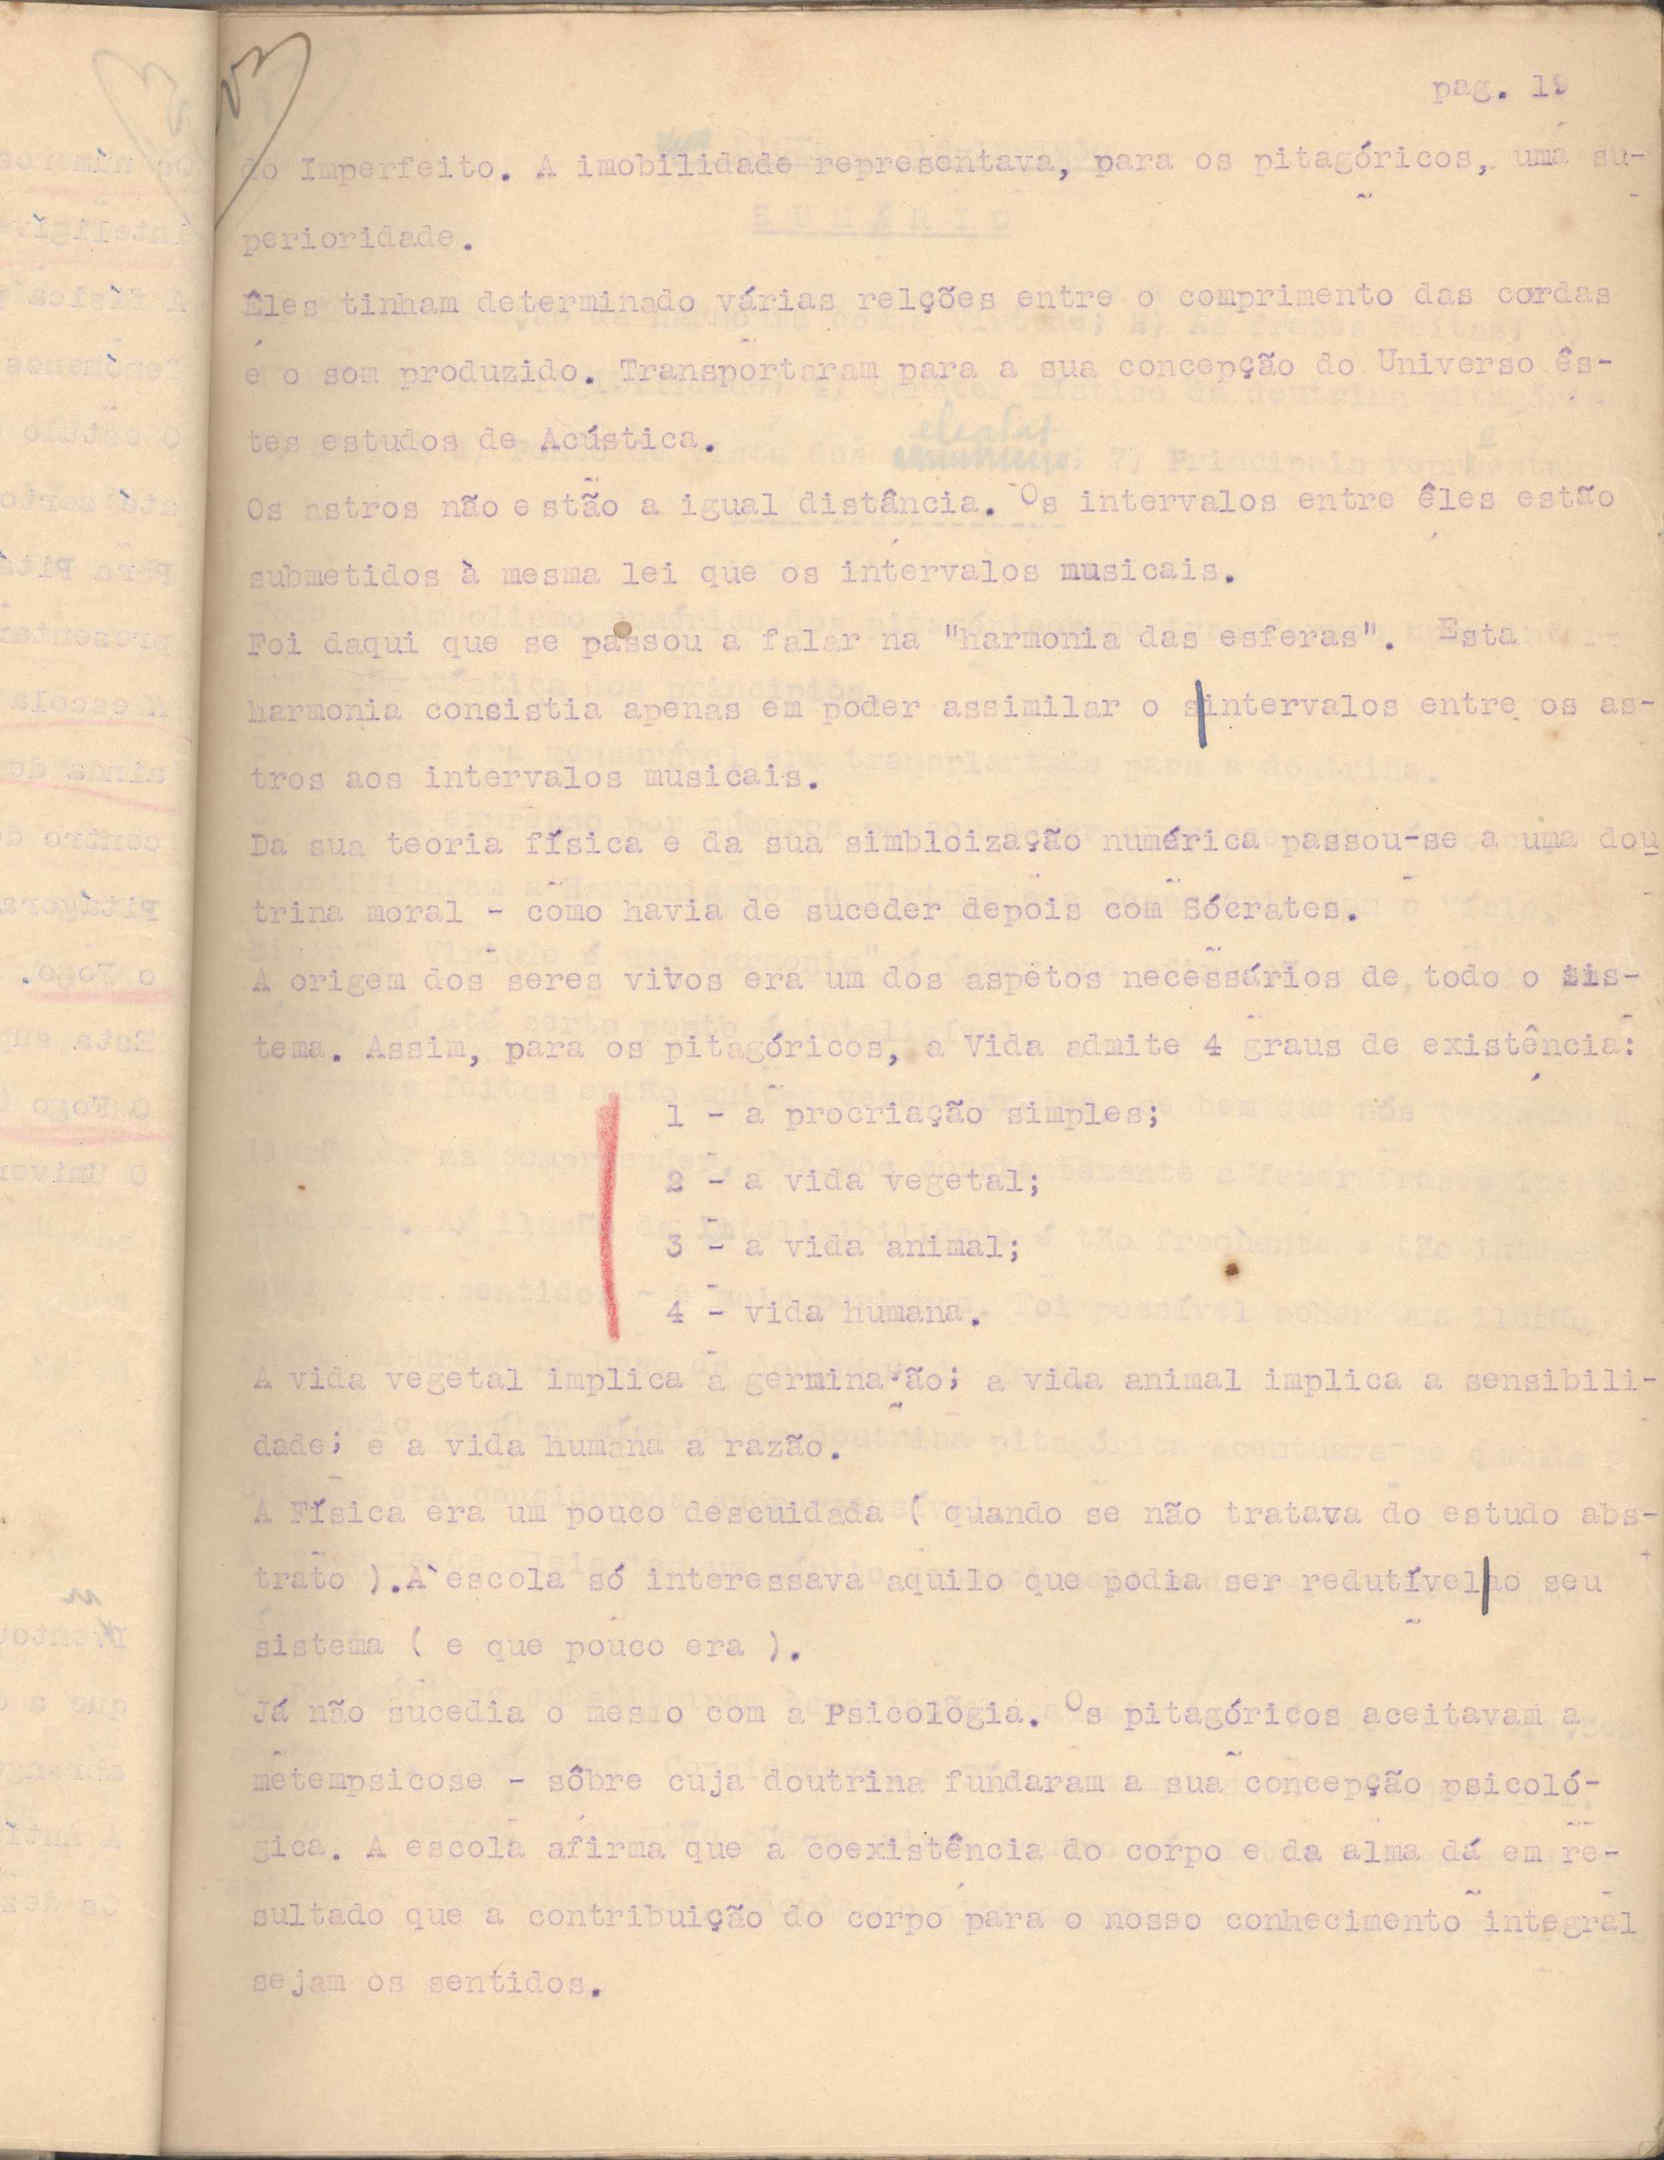 pag. 19
do Imperfeito. A imobilidade representava, para os pitagóricos, uma su-
perioridade.
Êles tinham determinado várias relções entre o comprimento das cordas
e o som produzido. Transportaram para a sua concepção do Universo ês-
tes estudos de Acústica.
Os astros não estão a igual distância. Os intervalos entre êles estão
submetidos à mesma lei que os intervalos musicais.
Foi daqui que se passou a falar na "harmonia das esferas". Esta
harmonia consistia apenas em poder assimilar o s|intervalos entre os as-
tros aos intervalos musicais.
Da sua teoria física e da sua simbloização numérica passou-se a uma dou
trina moral - como havia de suceder depois com Sócrates.
A origem dos seres vivos era um dos aspetos necessários de todo o sis-
tema. Assim, para os pitagóricos, a Vida admite 4 graus de existência:
1 - a procriação simples;
2 - a vida vegetal;
3 - a vida animal;
4 - vida humana.
A vida vegetal implica a germinação; a vida animal implica a sensibili-
dade; e a vida humana a razão.
A Física era um pouco descuidada ( quando se não tratava do estudo abs-
trato ).A escola só interessava aquilo que podia ser redutível|ao seu
sistema ( e que pouco era ).
Já não sucedia o mesmo com a Psicologia. Os pitagóricos aceitavam a
metempsicose - sôbre cuja doutrina fundaram a sua concepção psicoló-
gica. A escola afirma que a coexistência do corpo e da alma dá em re-
sultado que a contribuição do corpo para o nosso conhecimento integral
sejam os sentidos.